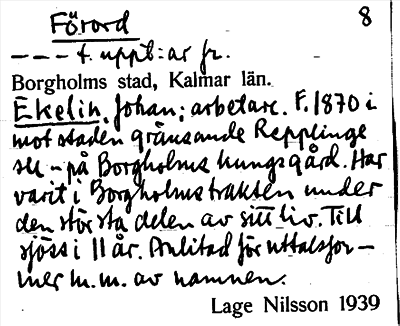 Förord 8
– – – f. uppt:ar fr.
Borgholms stad, Kalmar län.
Ekelin, Johan; arbetare. F. 1870 i
mot staden gränsande Repplinge
sn – på Borgholms kungsgård. Har
varit i Borgholmstrakten under
den största delen av sitt liv. Till
sjöss i 11 år. Anlitad för uttalsfor–
mer m.m. av namnen.
Lage Nilsson 1939